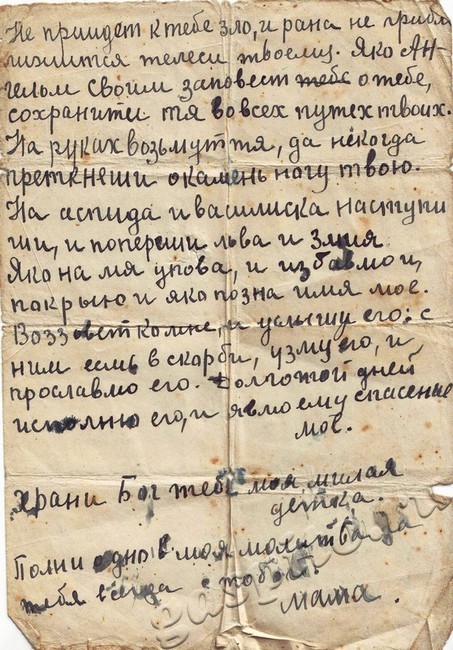 Не приидет к тебе зло, и рана не прибл
ижится телеси твоему. Яко Ан-
гелом своим заповест тебе о тебе,
сохранити тя во всех путех твоих.
На руках возьмут тя, да некогда
преткнеши о камень ногу твою.
На аспида и василиска наступи
ши, и попереши льва и змия
Яко на мя упова, и избавлю и,
покрыю и яко позна имя мое.
Воззовет ко мне, и услышу его: с
ним есмь в скорби, узму его, и,
прославлю его. Долготой дней
исполню его, и явлю ему спасение
мое.
Храни Бог тебе моя милая
детка.
Помни одно моя молитва за
тебя всегда с тобой.
мама.